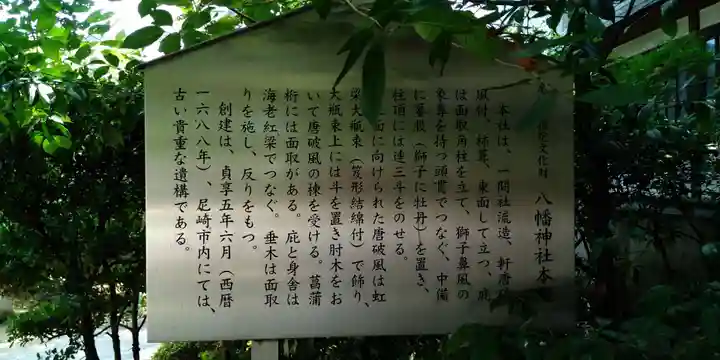 指定文化財 八幡神社本
本社は、一間社流造、軒唐
風付、柿葺、東面して立つ。庇
は面取角柱を立て、獅子鼻風の
象鼻を持つ頭貫でつなぐ。中備
に蟇股(獅子に牡丹)を置き、
柱頂には連三斗をのせる。
正面に向けられた唐破風は虹
梁大瓶束(笈形結綿付)で飾り、
大瓶束上には斗を置き肘木をお
いて唐破風の棟を受ける。菖蒲
桁には面取がある。庇と身舎は
海老虹梁でつなぐ。垂木は面取
りを施し、反りをもつ。
創建は、貞享五年六月(西暦
一六八八年)、尼崎市内にては、
古い貴重な遺構である。